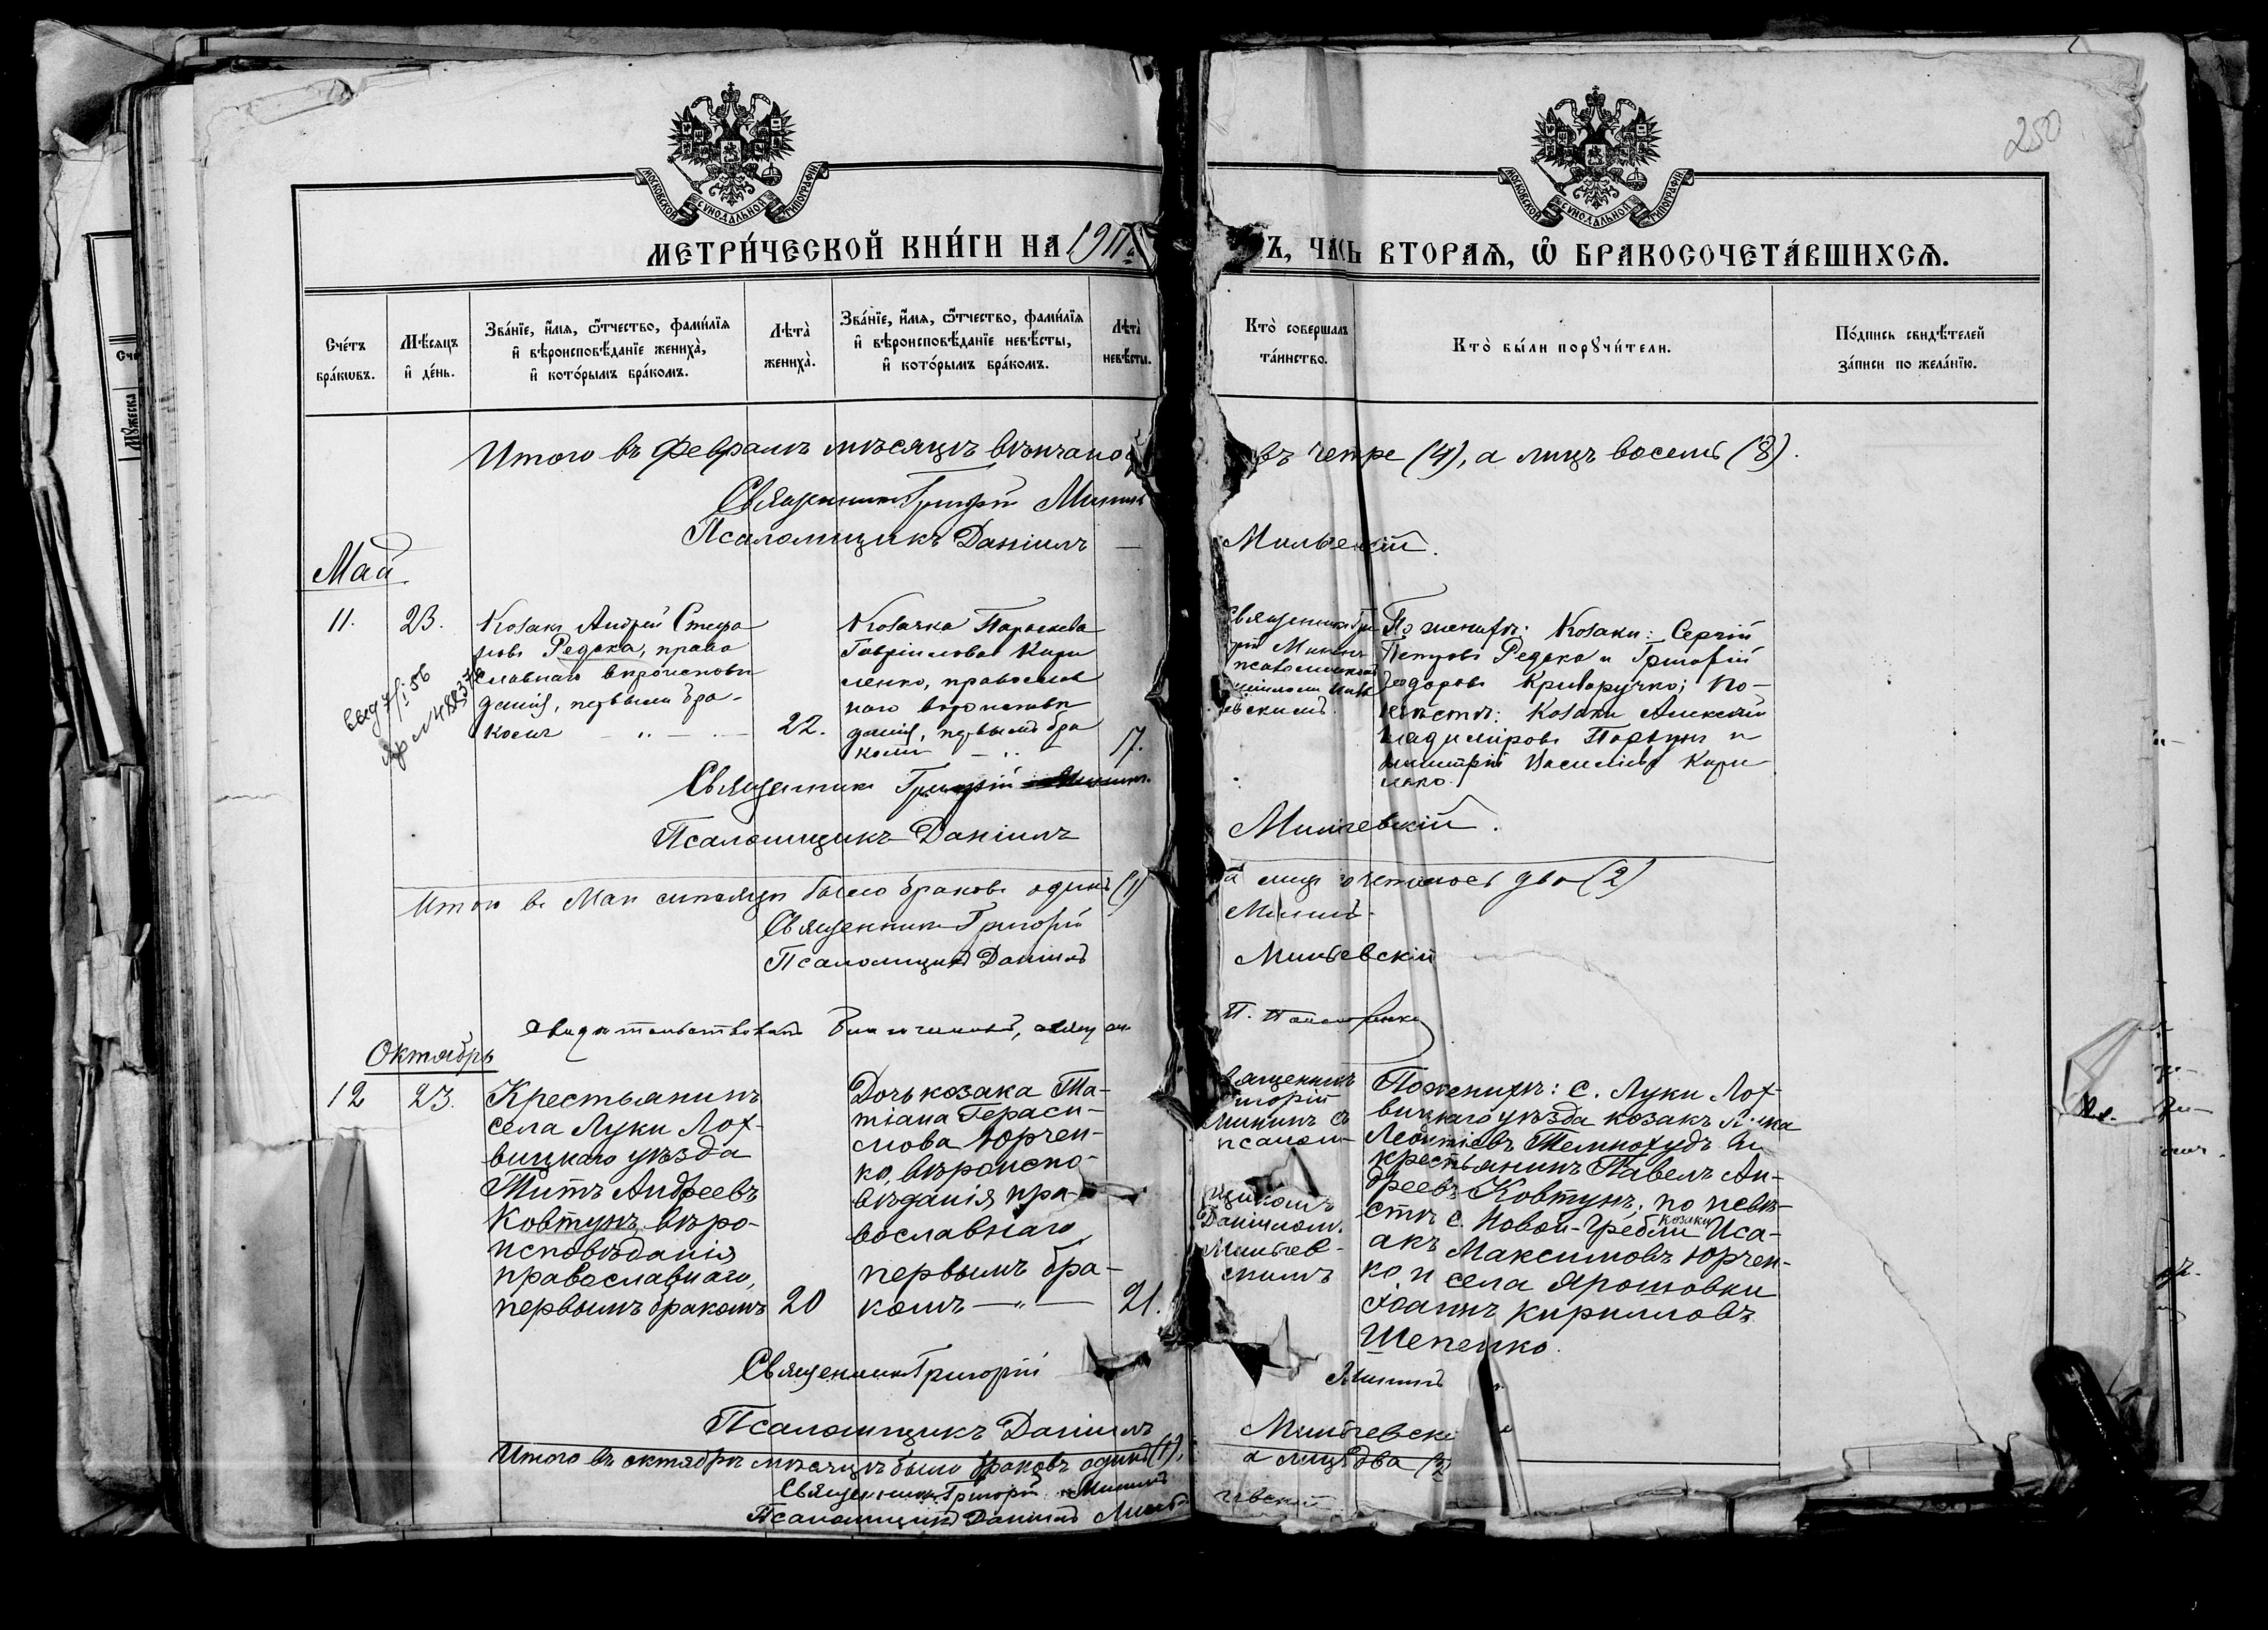 250
МОСКОВСКОЙ СУНОДАЛЬНОЙ ТИПОГРАФІИ
МОСКОВСКОЙ СУНОДАЛЬНОЙ ТИПОГРАФІИ
МЕТРИ́ЧЕСКОЙ КНИ́ГИ НА 1911
Ъ, ЧАСЬ ВТОРАѦ, Ѿ БРАКОСОЧЕТА́ВШИХСѦ.
Сче́тъ бра́кѡвъ.
Мѣ́сяцъ и҆ де́нь.
Зва́нїе, и҆́мя, ѻ҆́тчество, фами́лїя и҆ вѣроисповѣ́данїе жениха̀, и҆ кото́рымъ бра́комъ.
Лѣта̀ жениха̀.
Зва́нїе, и҆́мя, ѻ҆́тчество, фами́лїя и҆ вѣроисповѣ́данїе невѣ́сты, и҆ кото́рымъ бра́комъ.
Лѣта̀ невѣ́сты.
Кто̀ соверша́лъ та́инство.
Кто̀ бы́ли порꙋчи́тели.
По́дпись свидѣ́телей за́писи по жела́нїю.
Итого въ Февралѣ мѣсяцѣ вѣнчано
въ четре (4), а лицъ восемь (8).
Священникъ Григорій Мининъ
Псаломщикъ Даніилъ
Мильевскій.
Май
11.
23.
Козакъ Андрей Стефа
новъ Редька, право
славнаго вѣроисповѣ
данія, первымъ бра-
комъ
22.
Козачка Параскева
Гавріилова Кири
ленко, православ
наго вѣроисповѣ
данія, первымъ бра
комъ
17.
Священникъ Гри
рій Мининъ
псаломщикомъ
евскимъ.
По женихѣ: Козаки: Сергій
Петровъ Редька и Григорій
Ѳеодоровъ Криворучко; по
невѣстѣ: Козаки Алексѣй
ладиміровъ
имитрій Василіевъ Кири
ленко.
Священникъ Григорій
Псаломщикъ Даніилъ
Мильевскій.
Итого въ Маѣ мѣсяцѣ было браковъ одинъ (1)
а лицъ два (2)
Священникъ Григорій
Мининъ.
Псаломщикъ Даніилъ
Мильевскій
свидѣтельствовалъ Благочинный, священ
Октябрь
12
23.
Крестьянинъ
села Луки Лох-
вицкаго уѣзда
Титъ Андреевъ
Ковтунъ, вѣро-
исповѣданія
православнаго,
первымъ бракомъ
20
Дочь козака Та-
тіана Гераси-
мова Юрчен-
ко, вѣроиспо-
вѣданія пра-
вославнаго
первымъ бра-
комъ
21.
вященникъ
игорій
Мининъ съ
псалом-
щикомъ
Даніиломъ
Мильев-
скимъ
По женихѣ: с. Луки Лох-
вицкаго уѣзда козакъ
Леонтіевъ Темнохудъ и
крестьянинъ Павелъ Ан-
дреевъ Ковтунъ, по невѣ-
стѣ с. Новой-Гребли козаки Иса-
акъ Максимовъ Юрчен-
ко и села Ярошовки
Іоаннъ Кирилловъ
Шепенко.
Священникъ Григорій
Мининъ
Псаломщикъ Даніилъ
Мильевскі
Итого въ октябрѣ мѣсяцѣ было браковъ одинъ (1),
а лицъ два (2
Священникъ Григорій Мининъ
Псаломщикъ Даніилъ Миль
евскій